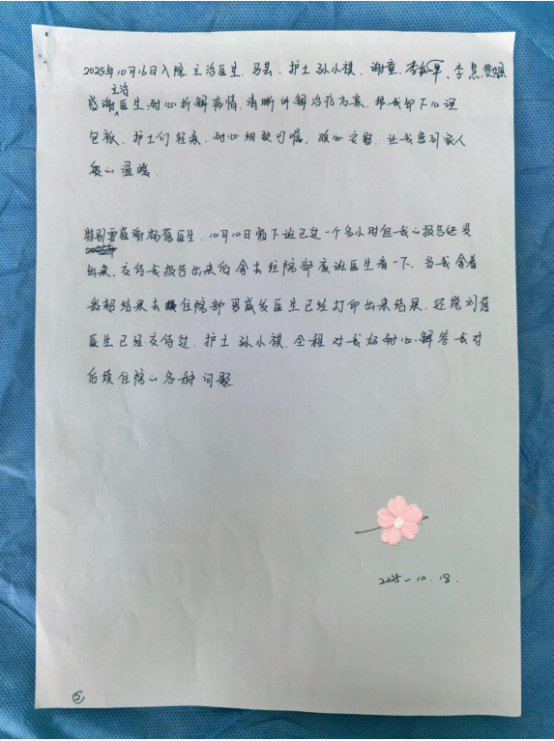 2025年10月16日入院 主治医生、马芸、护士孙小祺、谢童、李 早、李慧
主治
感谢医生、耐心拆解病情、清晰讲解治疗方案、帮我卸下心理
包袱、护士们轻柔、耐心细致叮嘱、暖心安慰、让我感到家人
般的温暖
特别要感谢 医生、10月10日晚下班已过一个多小时但我的报告还没
出来,交待我报告出来后拿去住院部夜班医生看一下,当我拿着
结果去住院部 医生已经打印出来结果,还说刘蓓
医生已经交待过、护士孙小祺、全程对我好耐心、解答我对
后续住院的各种问题
2025-10.18.
5